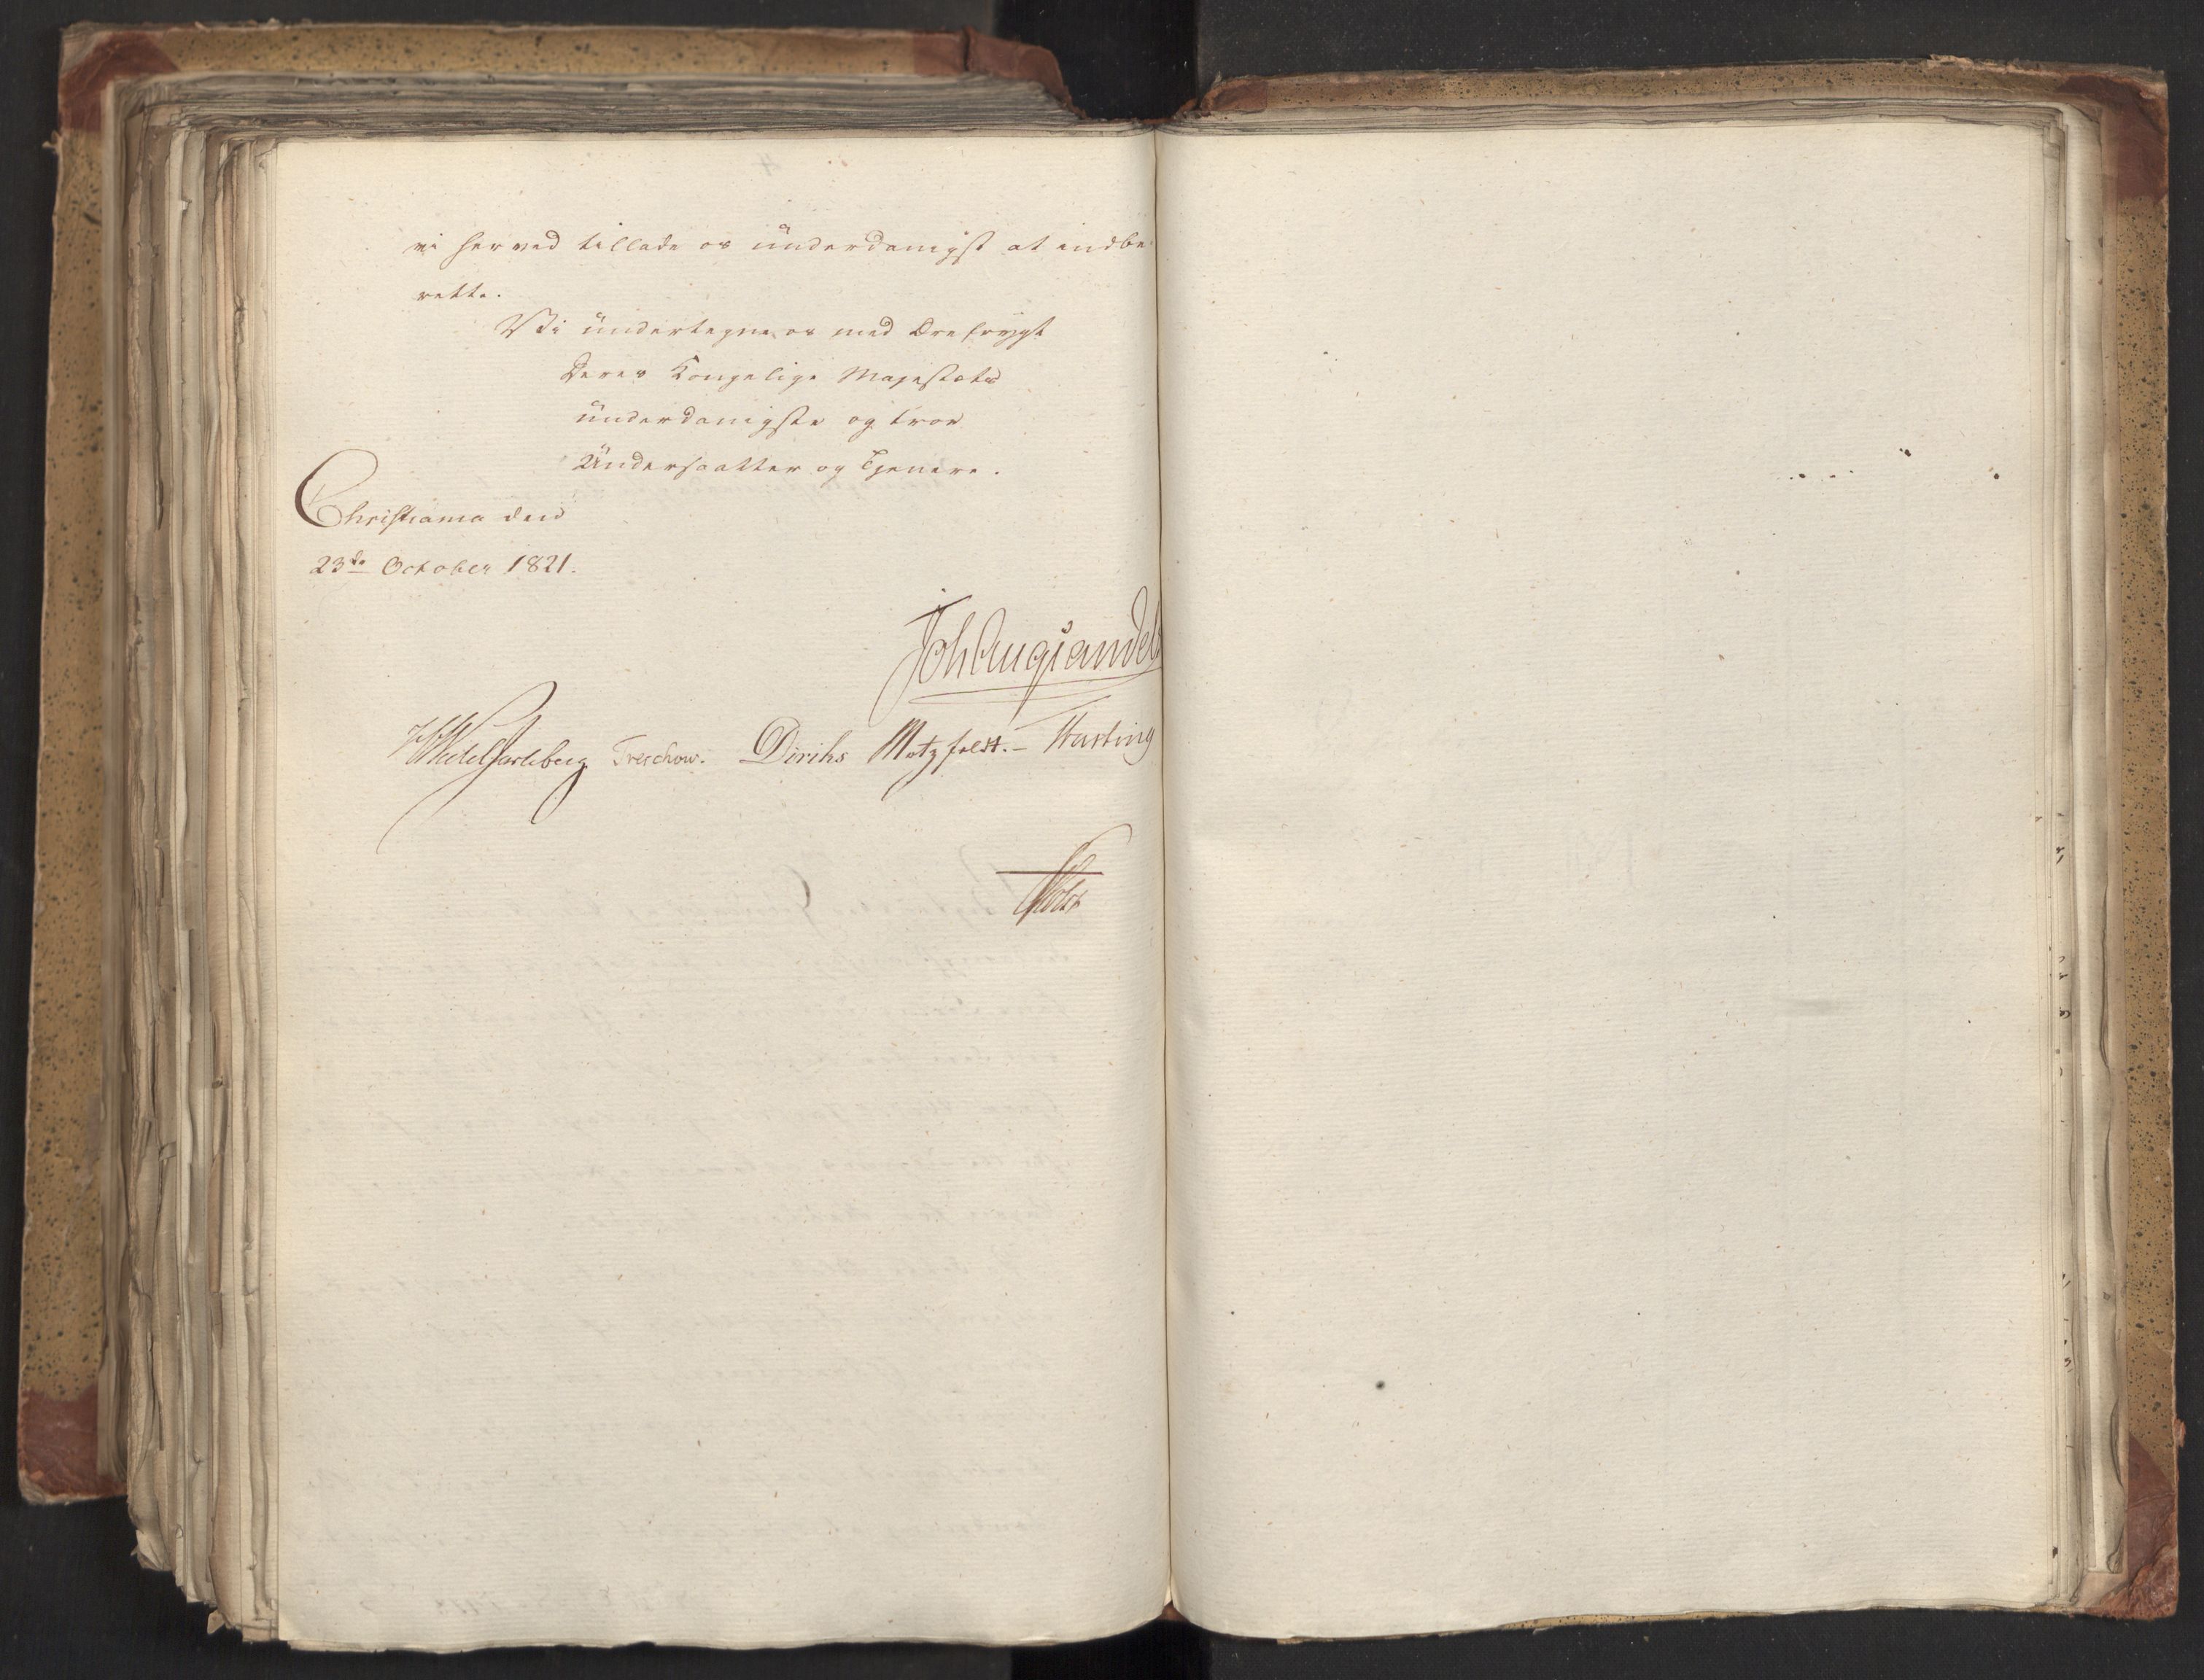 vi herved tillade os ünderdanigst at indbe
rette.
Vi ündertegne os med Ærefrygt
Deres Kongelige Majestæts
ünderdanigste og troe
Ündersaatter og Tjenere.
Christiania den
23de October 1821.
Joh Aug Sandels
HWedelJarlsberg Treschow. Diriks Motzfeldt.- Hasting
Holst